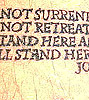 NOT SURREN
NOT RETREAT
TAND HERE A
LL STAND HERE
JO